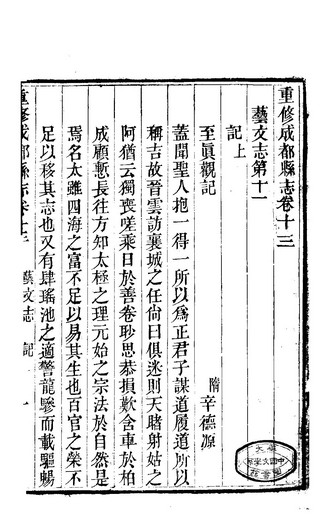 重修成都縣志卷十三
藝文志第十一
記上
至眞觀記
隋 辛德源
蓋聞聖人抱一得一所以爲正君子謀道履道所以
稱吉故晉雲訪襄城之任尙曰俱迷則天睹射姑之
阿猶云獨喪嗟乘日於善卷眇思恭損歎含車於柏
成顧慙長往方知太極之理元始之宗法於自然是
焉名大雖四海之富不足以易其生也百官之榮不
足以移其志也又有肆瑤池之適警龍驂而載驅暢
重修成都縣志卷十三
藝文志 記 一